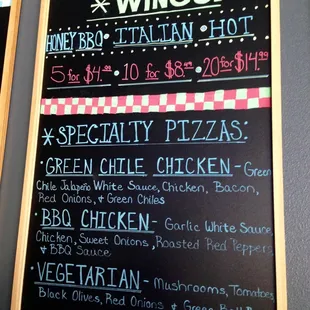 * WINGS:
HONEY BBQ • ITALIAN • HOT
5 for $4.99 • 10 for $8.99 • 20 for $14.99
* SPECIALTY PIZZAS:
• GREEN CHILE CHICKEN - Green
Chile Jalapeño White Sauce, Chicken, Bacon,
Red Onions, & Green Chiles
• BBQ CHICKEN - Garlic White Sauce
Chicken, Sweet Onions, Roasted Red Peppers
& BBQ Sauce
• VEGETARIAN - Mushrooms, Tomatoes
Black Olives, Red Onions & Green Bell